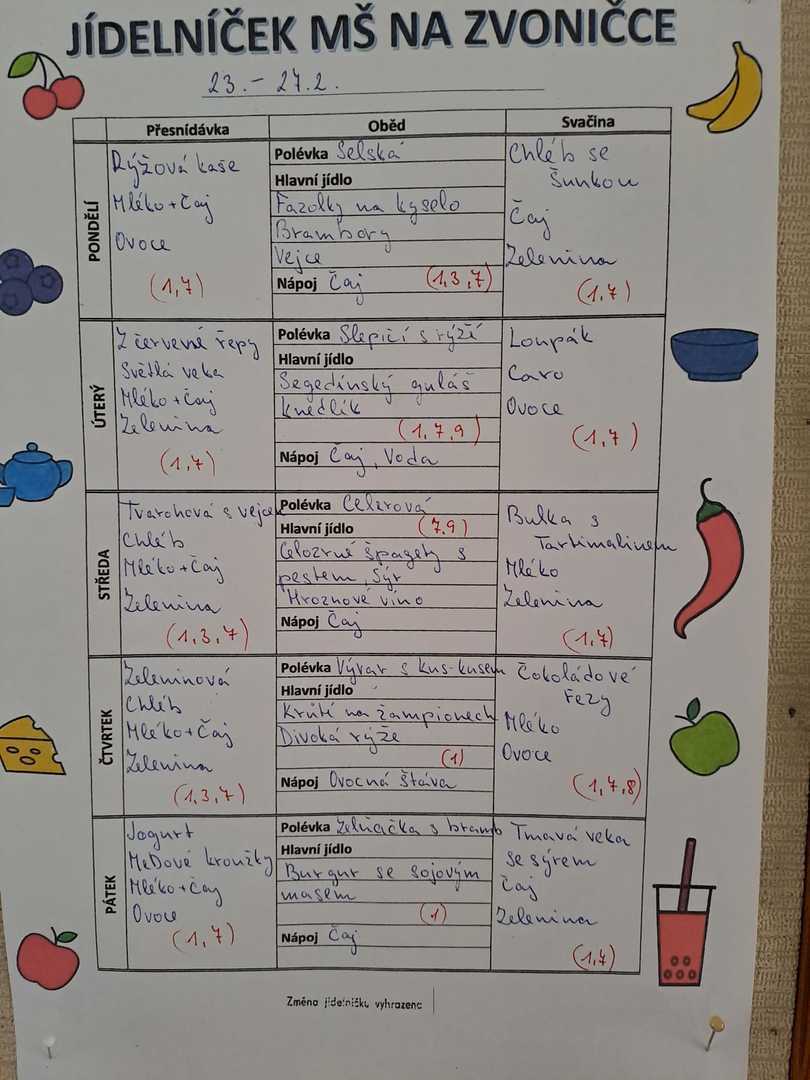 JÍDELNÍČEK MŠ NA ZVONIČCE
23. – 27.2.
Přesnídávka Oběd Svačina
PONDĚLÍ
Rýžová kaše
Mléko + Čaj
Ovoce
(1,7)
Polévka Selská
Hlavní jídlo
Fazolky na kyselo
Brambory
Vejce
Nápoj Čaj (1,3,7)
Chléb se
Šunkou
Čaj
Zelenina
(1,7)
ÚTERÝ
Z červené řepy
Světlá veka
Mléko + Čaj
Zelenina
(1,7)
Polévka Slepičí s rýží
Hlavní jídlo
Segedínský guláš
knedlík
(1,7,9)
Nápoj Čaj, Voda
Loupák
Caro
Ovoce
(1,7)
STŘEDA
Tvarohová s vejcem
Chléb
Mléko + Čaj
Zelenina
(1,3,7)
Polévka Celerová
Hlavní jídlo (7,9)
Celozrné špagety s
pestem, Sýr
Hroznové víno
Nápoj Čaj
Bulka s
Tartimalinem
Mléko
Zelenina
(1,7)
ČTVRTEK
Zeleninová
Chléb
Mléko + Čaj
Zelenina
(1,3,7)
Polévka Vývar s kus-kusem
Hlavní jídlo
Krůtí na žampionech
Divoká rýže
(1)
Nápoj Ovocná šťáva
Čokoládové
řezy
Mléko
Ovoce
(1,7,8)
PÁTEK
Jogurt
MeDové kroužky
Mléko + Čaj
Ovoce
(1,7)
Polévka Zelňačka s bramb
Hlavní jídlo
Burgur se sojovým
masem
(1)
Nápoj Čaj
Tmavá veka
se sýrem
Čaj
Zelenina
(1,7)
Změna jídelníčku vyhrazena